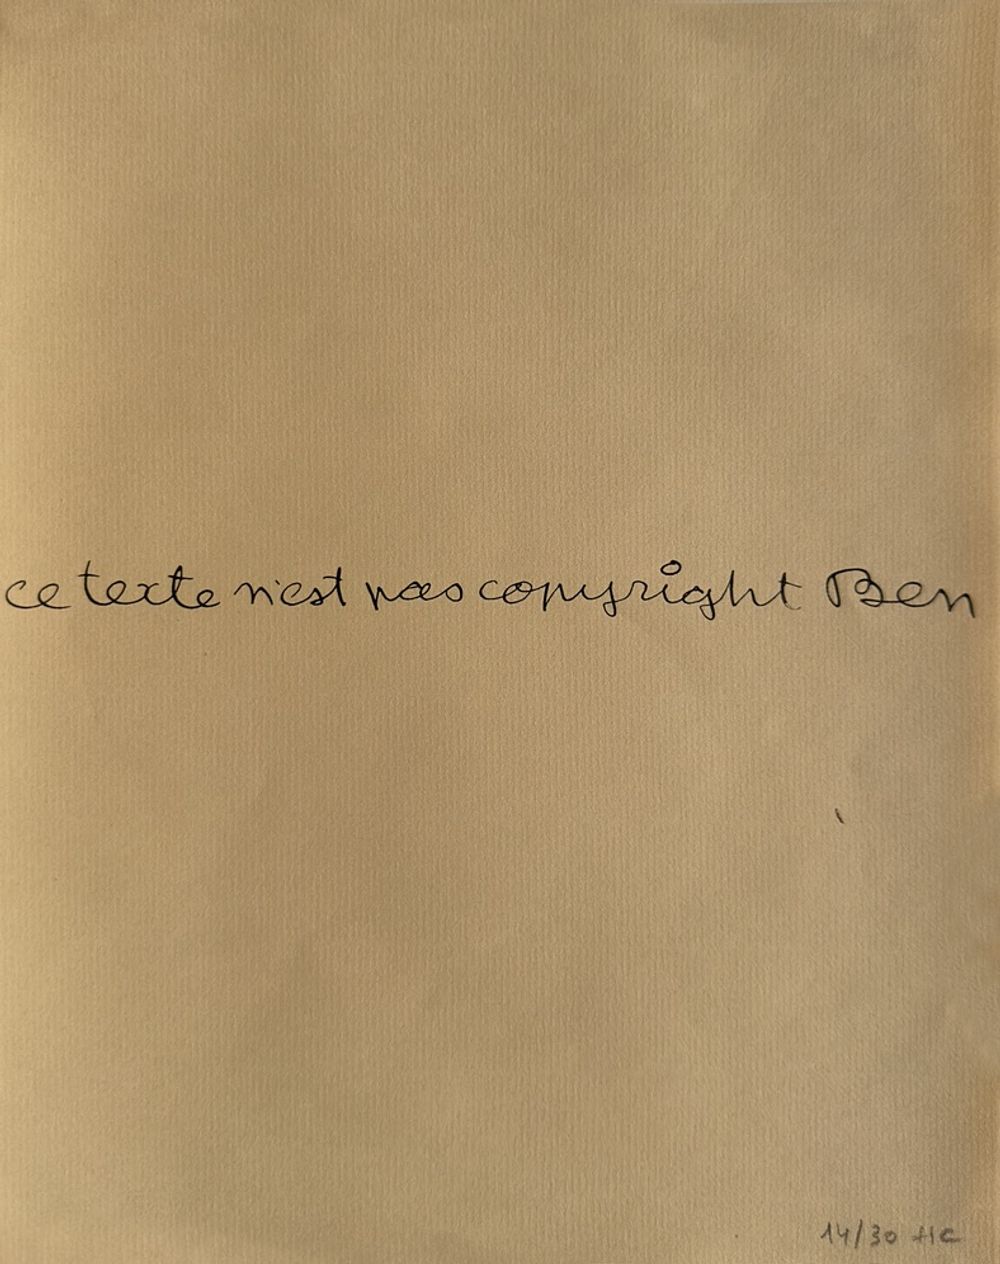 ce texte n'est pas copyright Ben
14/30 HC